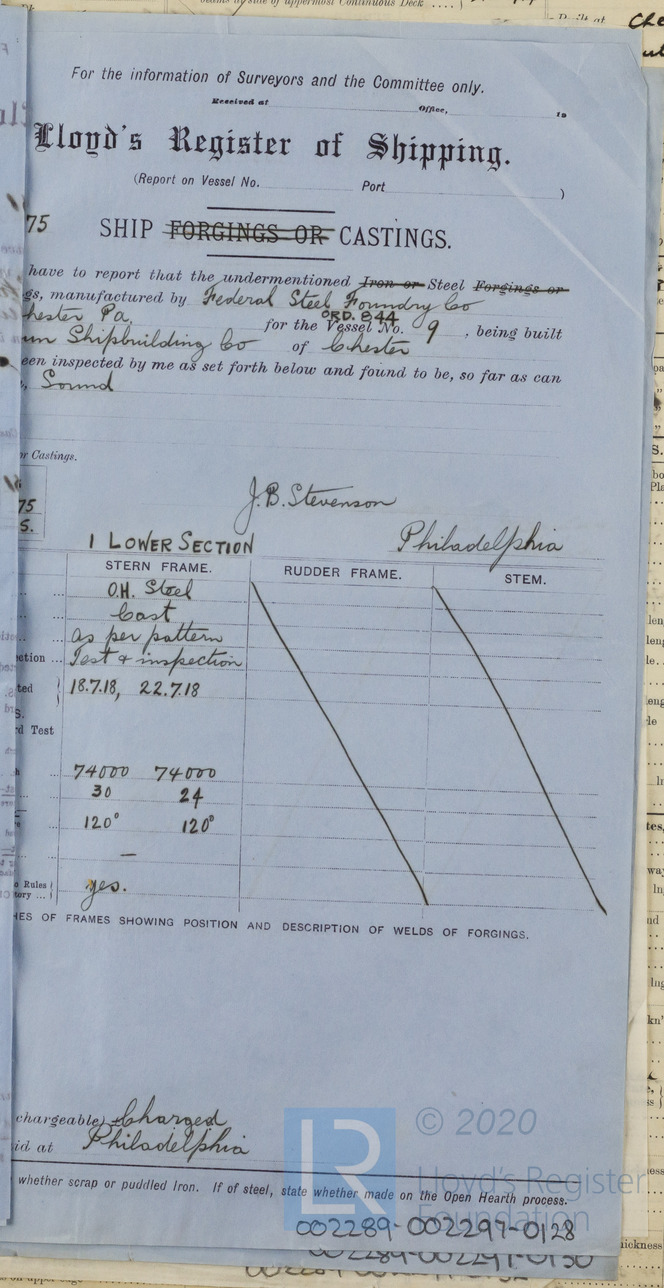 For the information of Surveyors and the Committee only.
Received at Office, 19
Lloyd's Register of Shipping.
(Report on Vessel No. Port )
75
SHIP FORGINGS OR CASTINGS.
have to report that the undermentioned Iron or Steel Forgings or
gs, manufactured by Federal Steel Foundry Co
hester Pa,
ORD. 844
for the Vessel No. 9 , being built
un Shipbuilding Co of Chester
een inspected by me as set forth below and found to be, so far as can
, Sound
or Castings.
75
S.
J.B. Stevenson
Philadelphia
1 LOWER SECTION
STERN FRAME. RUDDER FRAME. STEM.
... O.H. Steel
... Cast
... as per pattern
ection ... Test & inspection
ted 18.7.18, 22.7.18
S.
d Test
... 74000 74000
... 30 24
... 120° 120°
... —
o Rules
tory ... yes.
HES OF FRAMES SHOWING POSITION AND DESCRIPTION OF WELDS OF FORGINGS.
chargeable) Charged
id at Philadelphia
whether scrap or puddled Iron. If of steel, state whether made on the Open Hearth process.
© 2020
LR
Lloyd's Register
Foundation
002289-002297-0128
002289-002297-0130